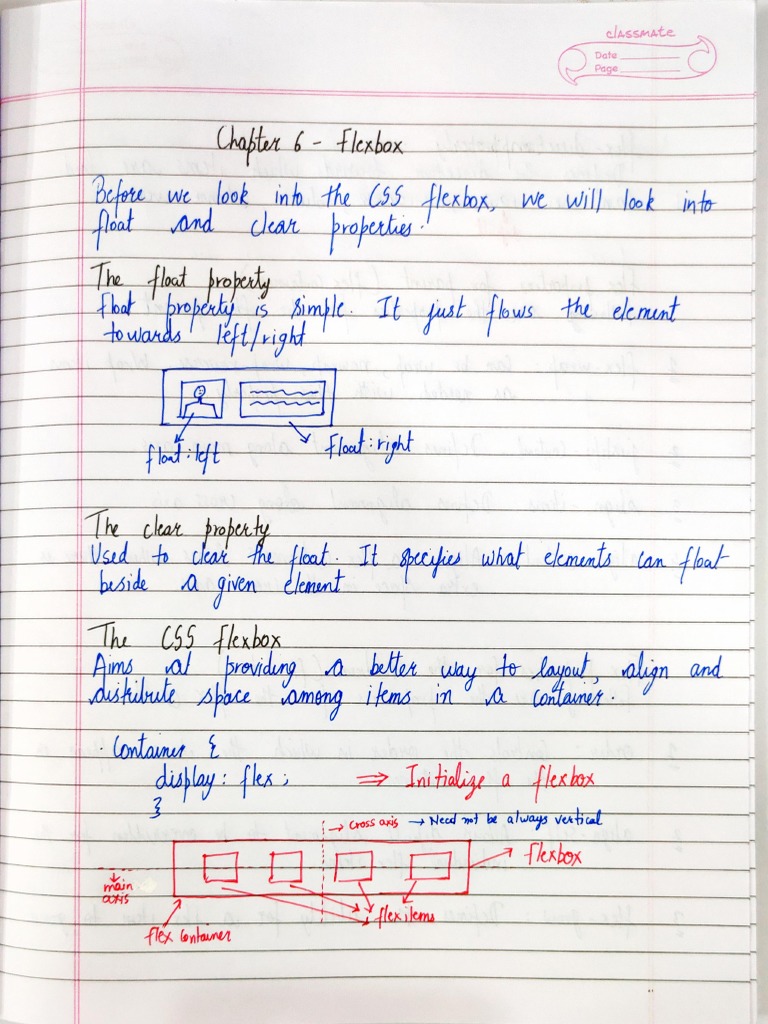 classmate
Date
Page
Chapter 6 - Flexbox
Before we look into the CSS flexbox, we will look into
float and clear properties.
The float property
float property is simple. It just flows the element
towards left/right
float:left
Float:right
The clear property
Used to clear the float. It specifies what elements can float
beside a given element
The CSS flexbox
Aims at providing a better way to layout, align and
distribute space among items in a container.
.Container {
display: flex; ⇒ Initialize a flexbox
}
→ Cross axis → Need not be always vertical
flexbox
main
axis
flex items
flex container